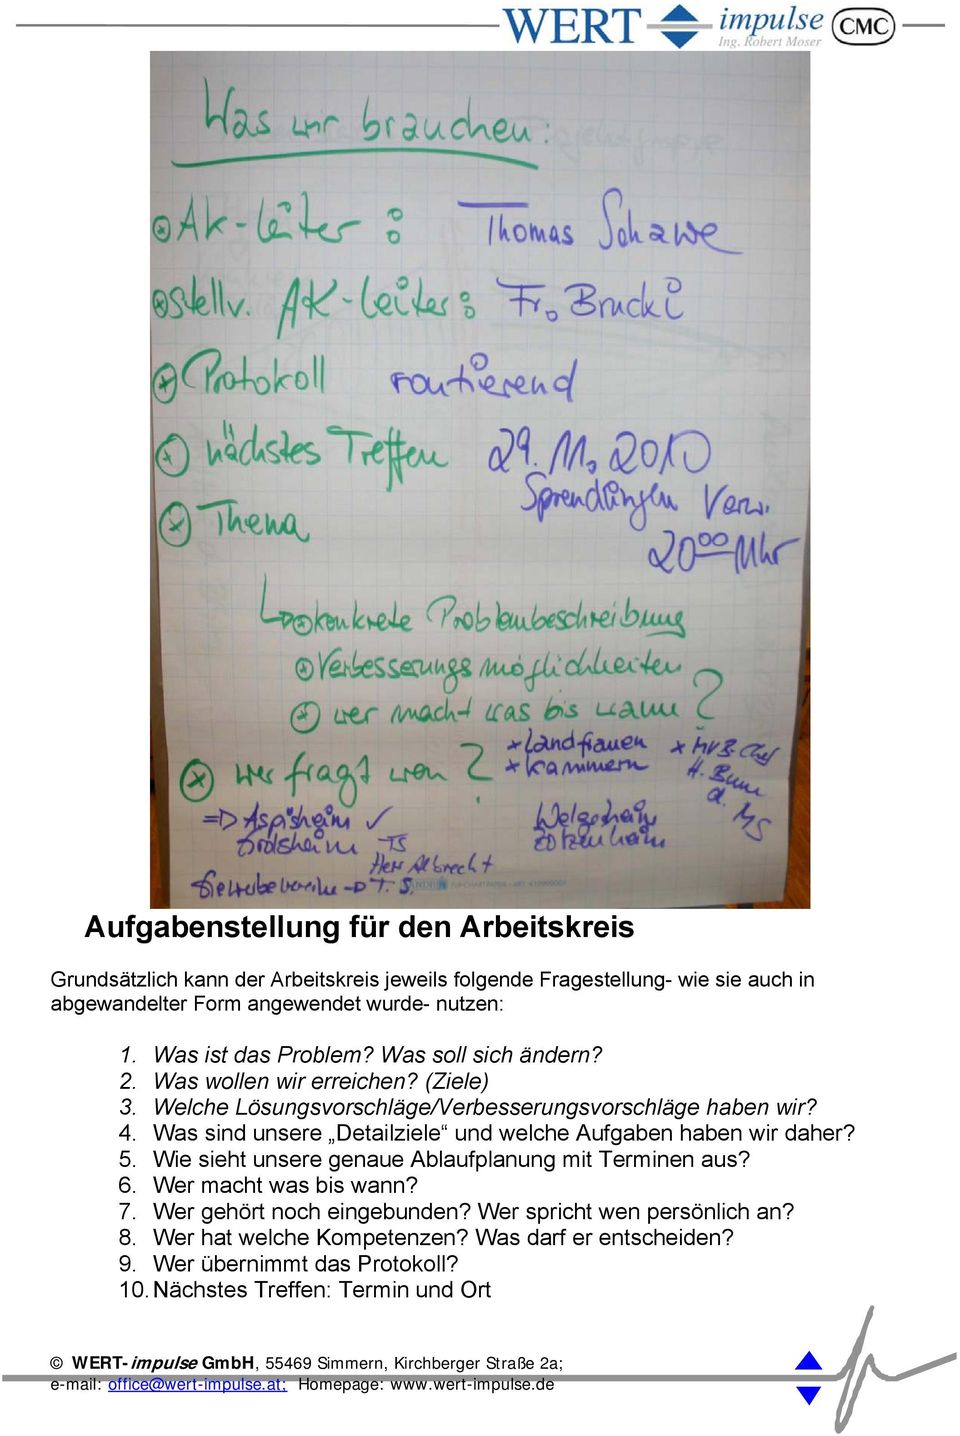 WERT impulse CMC
Ing. Robert Moser
Was wir brauchen:
AK-Leiter: Thomas Schawe
stellv. AK-Leiter: Fr. Brucki
Protokoll routierend
nächstes Treffen 29.11.2010
Sprendlingen Verw.
2000 Uhr
Thema
konkrete Problembeschreibung
Verbesserungsmöglichkeiten
wer macht was bis wann?
wer fragt wen?
x Landfrauen
x Kammern
x MVB-Chef
H.
d. MS
=> Aspisheim ✓
TS
Welgesheim
Zotzenheim
Herr Albrecht
Gewerbevereine -> T. S.
Aufgabenstellung für den Arbeitskreis
Grundsätzlich kann der Arbeitskreis jeweils folgende Fragestellung- wie sie auch in
abgewandelter Form angewendet wurde- nutzen:
1. Was ist das Problem? Was soll sich ändern?
2. Was wollen wir erreichen? (Ziele)
3. Welche Lösungsvorschläge/Verbesserungsvorschläge haben wir?
4. Was sind unsere „Detailziele“ und welche Aufgaben haben wir daher?
5. Wie sieht unsere genaue Ablaufplanung mit Terminen aus?
6. Wer macht was bis wann?
7. Wer gehört noch eingebunden? Wer spricht wen persönlich an?
8. Wer hat welche Kompetenzen? Was darf er entscheiden?
9. Wer übernimmt das Protokoll?
10. Nächstes Treffen: Termin und Ort
© WERT-impulse GmbH, 55469 Simmern, Kirchberger Straße 2a;
e-mail: office@wert-impulse.at; Homepage: www.wert-impulse.de